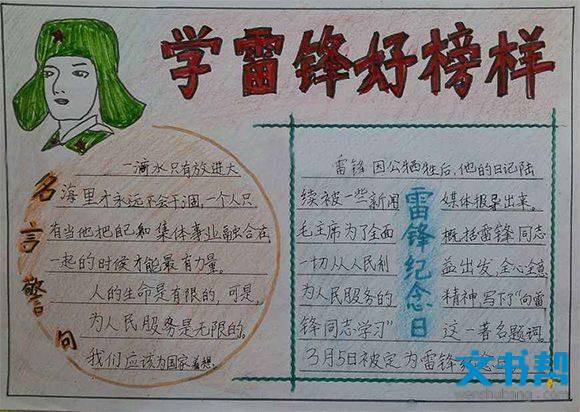 学雷锋好榜样
名言警句
一滴水只有放进大
海里才永远不会干涸,一个人只
有当他把自己和集体事业融合在
一起的时候才能最有力量。
人的生命是有限的,可是,
为人民服务是无限的。
我们应该为国家着想。
雷锋纪念日
雷锋因公牺牲后,他的日记陆
续被一些新闻媒体报导出来。
毛主席为了全面概括雷锋同志
一切从人民利益出发,全心全意
为人民服务的精神,写下了“向雷
锋同志学习”这一著名题词。
3月5日被定为雷锋
文书帮
wenshubang.com